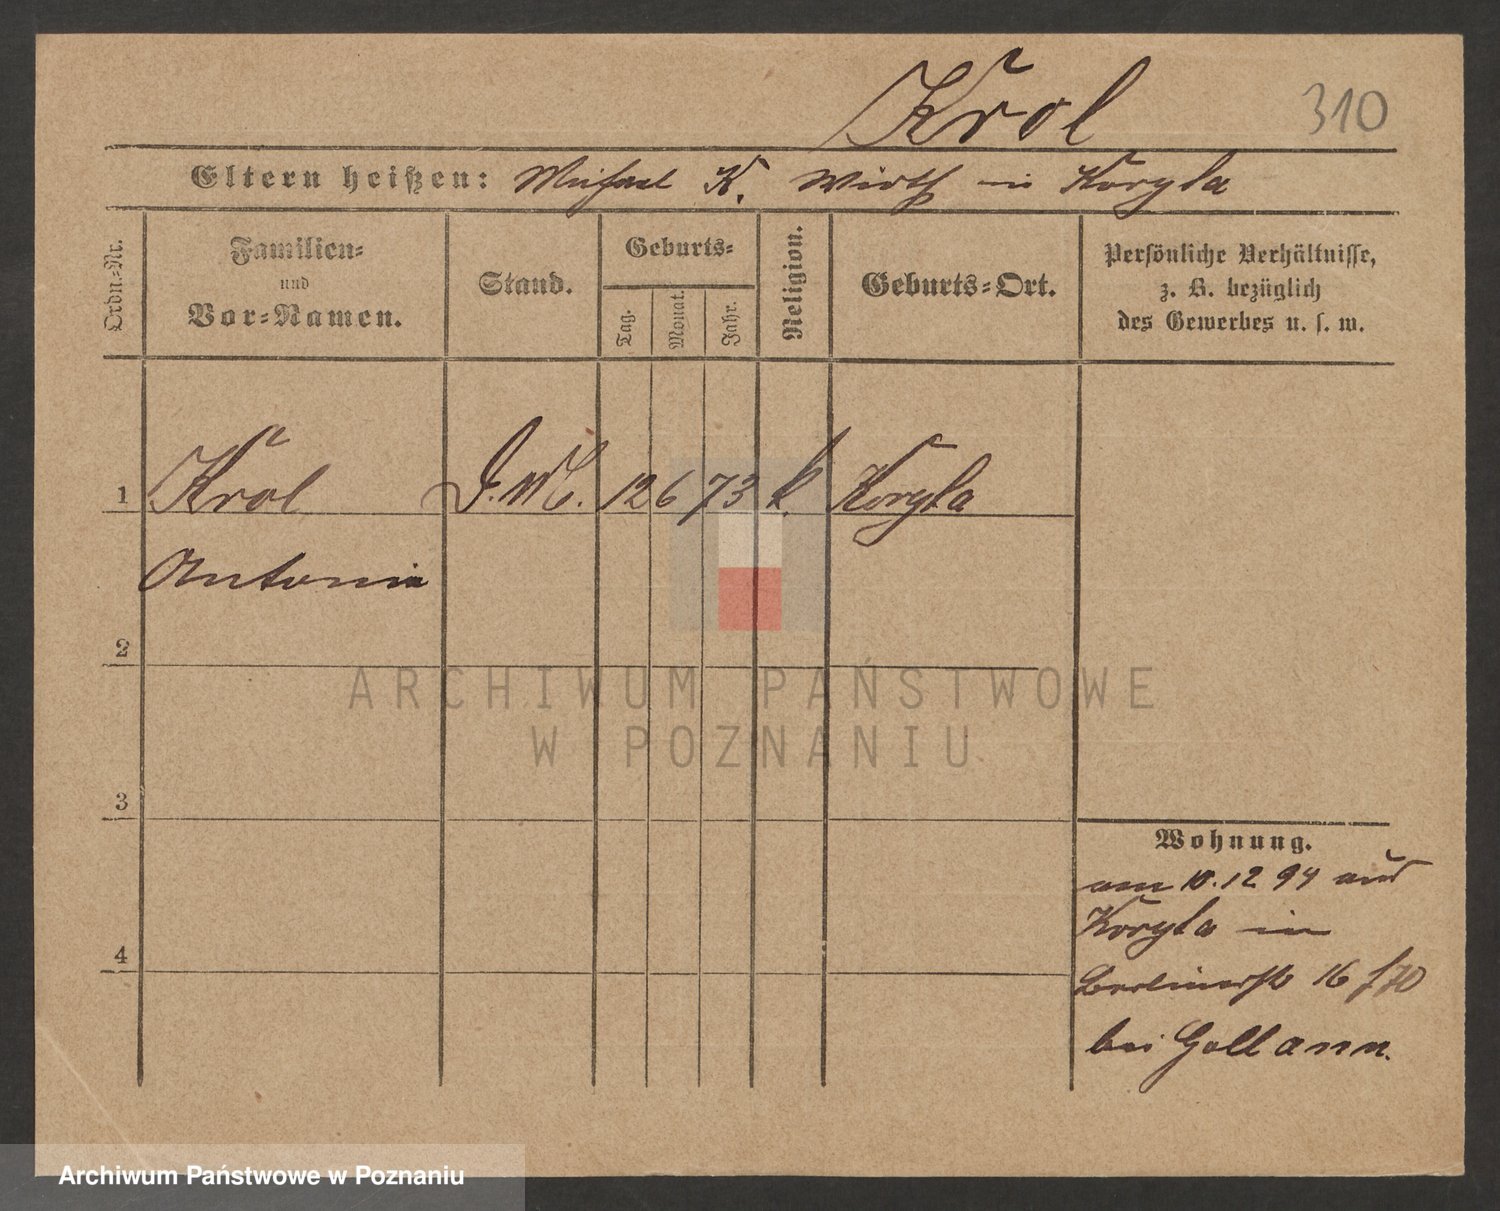 Krol
310
Eltern heißen: Michael K. Wirth in Koryta
Ordn.-Nr.
Familien-
und
Vor-Namen.
Stand.
Geburts-
Tag.
Monat.
Jahr.
Religion.
Geburts-Ort.
Persönliche Verhältnisse,
z. B. bezüglich
des Gewerbes u. s. w.
1 Krol D. M. 12 6 73 k. Koryta
Antonie
2
3
4
Wohnung.
am 10.12 94 aus
Koryta in
Berlinerstr 16
bei Gollann.
ARCHIWUM PAŃSTWOWE
W POZNANIU
Archiwum Państwowe w Poznaniu